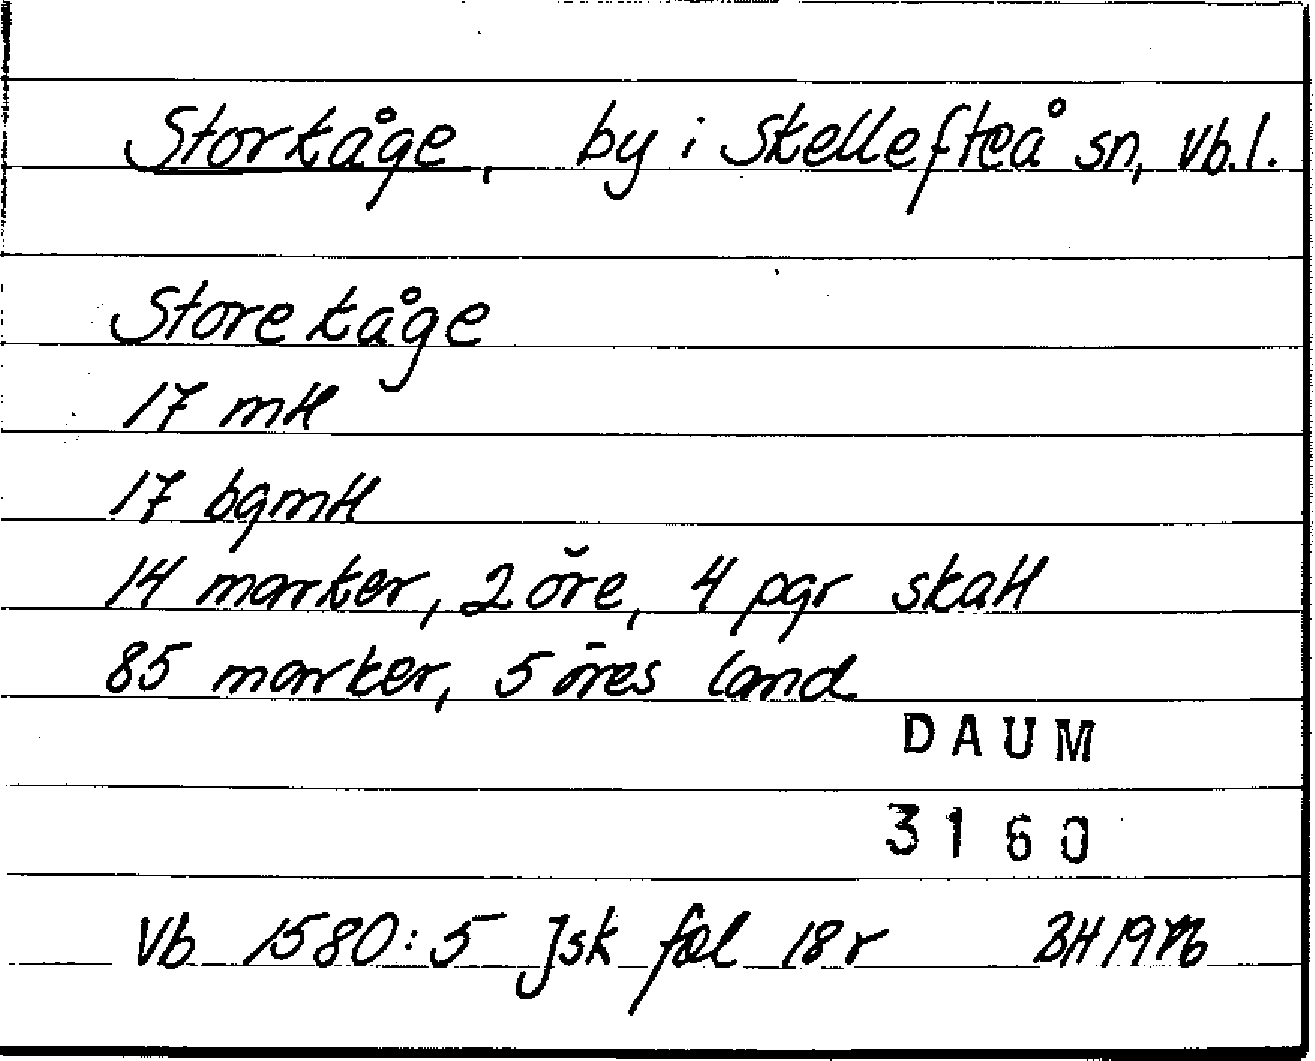 Storkåge, by i Skellefteå sn, Vb.l.
Store kåge
17 mtl
17 bgmtl
14 marker, 2 öre, 4 pgr skatt
85 marker, 5 öres land
DAUM
3160
Vb 1580:5 Jsk fol 18r BH 1976